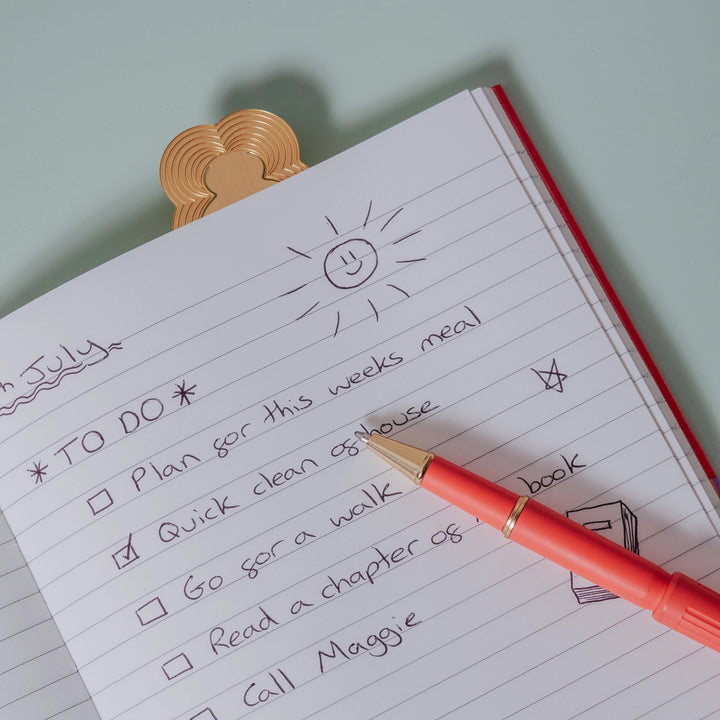 July
*TO DO*
Plan for this weeks meal
Quick clean of house
Go for a walk
Read a chapter of book
Call Maggie